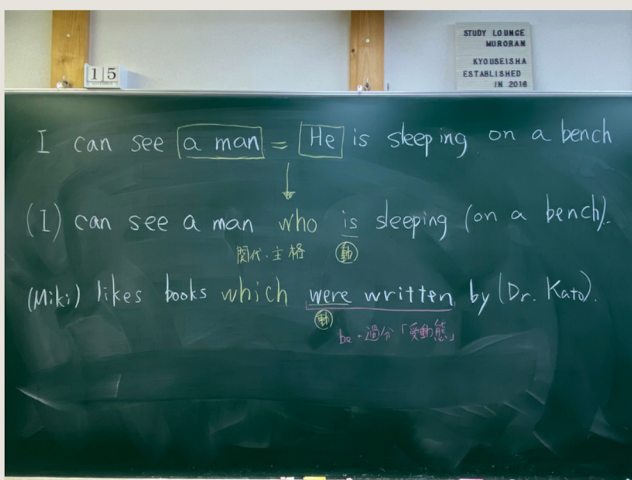 STUDY LOUNGE
MURORAN
KYOUSEISHA
ESTABLISHED
IN 2016
15
I can see a man = He is sleeping on a bench
(I) can see a man who is sleeping (on a bench).
関代.主格 動
(Miki) likes books which were written by (Dr. Kato).
動
be+過分「受動態」